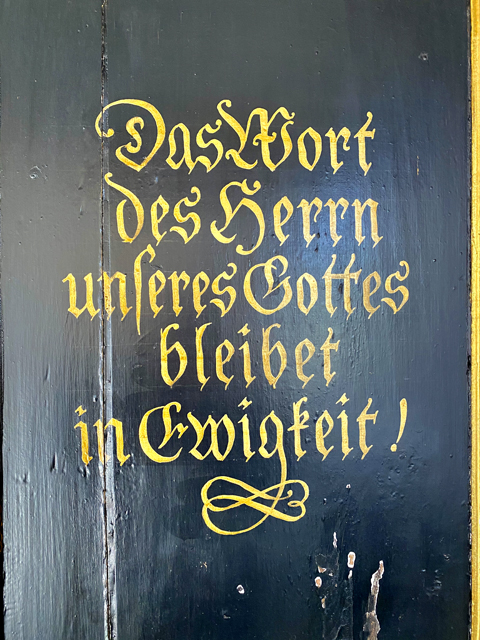 Das Wort
des Herrn
unſeres Gottes
bleibet
in Ewigkeit!